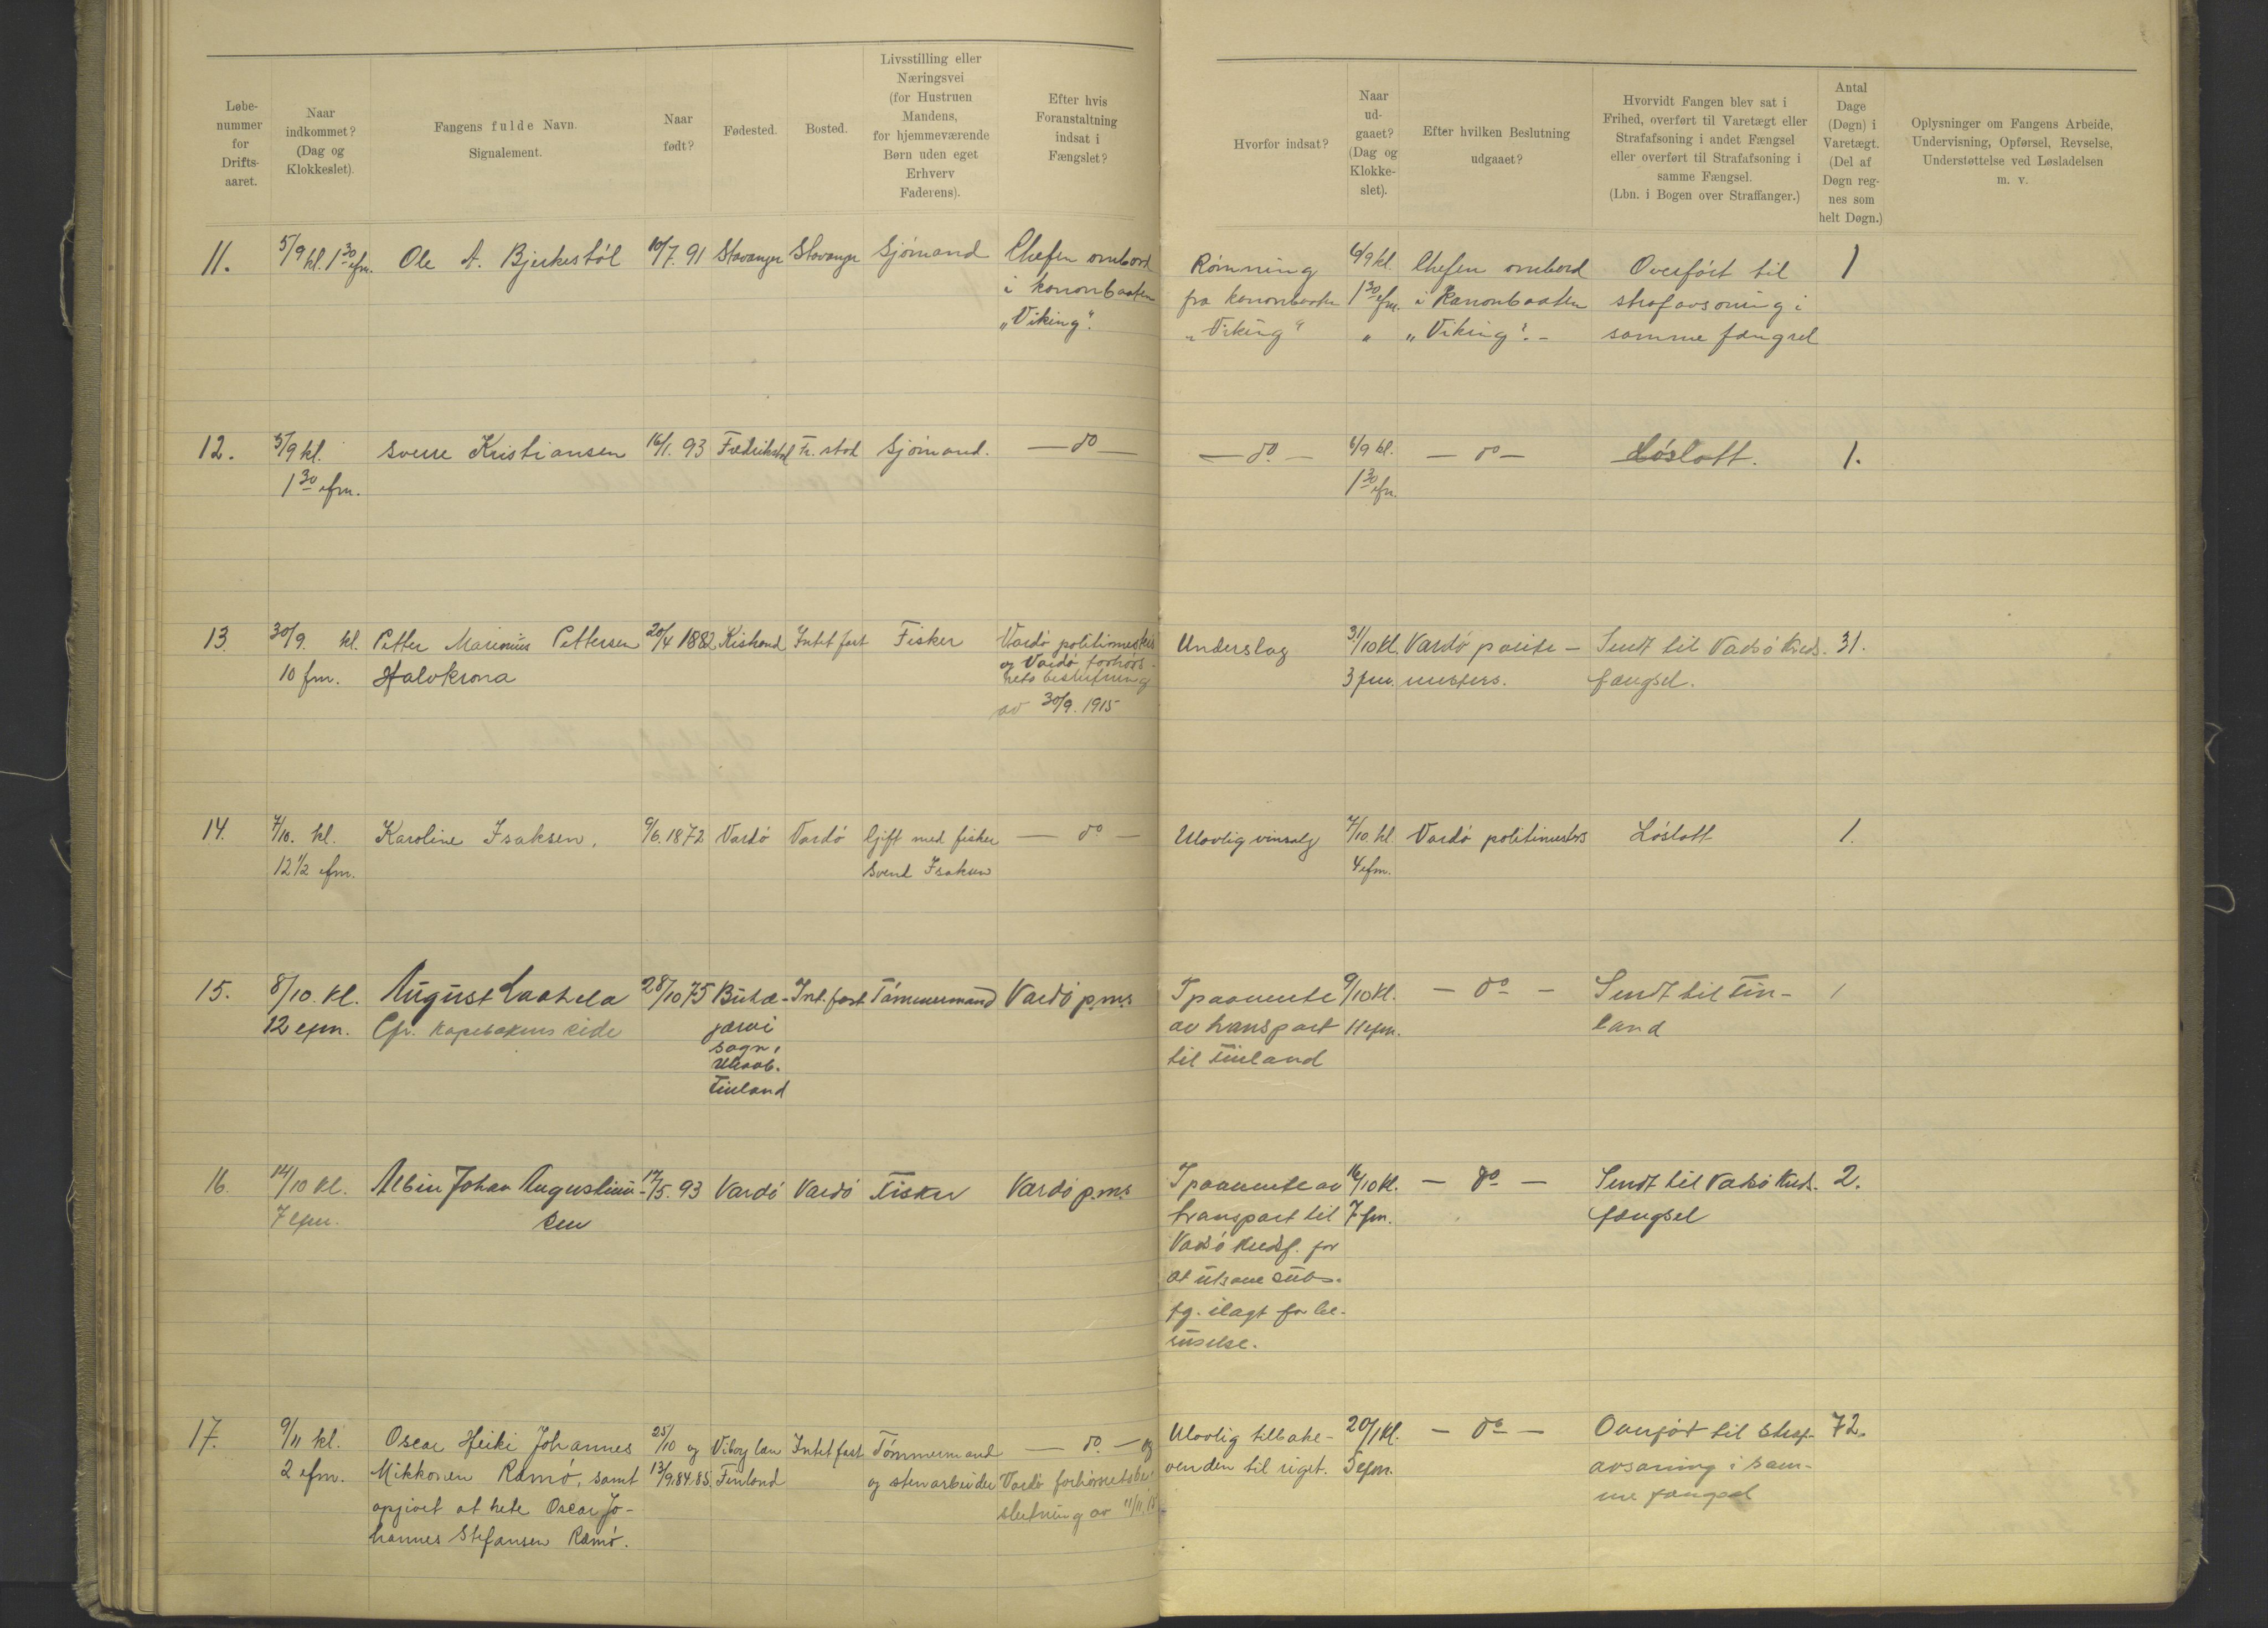 Løbe-
nummer
for
Drifts-
aaret.
Naar
indkommet?
(Dag og
Klokkeslet).
Fangens fulde Navn.
Signalement.
Naar
født?
Fødested.
Bosted.
Livsstilling eller
Næringsvei
(for Hustruen
Mandens,
for hjemmeværende
Børn uden eget
Erhverv
Faderens).
Efter hvis
Foranstaltning
indsat i
Fængslet?
Hvorfor indsat?
Naar
ud-
gaaet?
(Dag og
Klokke-
slet).
Efter hvilken Beslutning
udgaaet?
Hvorvidt Fangen blev sat i
Frihed, overført til Varetægt eller
Strafafsoning i andet Fængsel
eller overført til Strafafsoning i
samme Fængsel.
(Lbn. i Bogen over Straffanger.)
Antal
Dage
(Døgn) i
Varetægt.
(Del af
Døgn reg-
nes som
helt Døgn.)
Oplysninger om Fangens Arbeide,
Undervisning, Opførsel, Revselse,
Understøttelse ved Løsladelsen
m. v.
11.
5/9 kl. 1 30 efm.
Ole A. Bjerkestøl
10/7. 91
Stavanger
Stavanger
Sjømand
Chefen ombord
i kanonbaaten
„Viking".
Rømning
fra kanonbaaten
„Viking"
6/9 kl.
1 30 efm.
"
Chefen ombord
i kanonbaaten
„Viking". -
Overført til
strafavsoning i
samme fængsel
1
12.
5/9 kl.
1 30 efm.
Sverre Kristiansen
16/1. 93
Fredrikstad
Fr. stad
Sjømand.
— do —
— do. —
6/9 kl.
1 30 efm.
— do —
Løslatt.
1.
13.
30/9. kl.
10 fm.
Petter Marinius Pettersen
Halvkrona
20/4 1882
Kistrand
Intet fast
Fisker
Vardø politimesters
og Vardø forhørs-
rets beslutning
av 30/9. 1915
Underslag
31/10 kl.
3 fm.
Vardø polite-
mesters.
Sendt til Vadsø kreds-
fængsel.
31.
14.
7/10. kl.
12 1/2 efm.
Karoline Isaksen,
9/6. 1872
Vardø
Vardø
Gift med fisker
Svend Isaksen
— do —
Ulovlig vinsalg
7/10. kl.
4 efm.
Vardø politimesters
Løslatt
1.
15.
8/10. kl.
12 efm.
August Laahela
Cfr. kopebokens side
28/10 75
-
jærvi
sogn,
Uleaab.
Finland
Int. fast
Tømmermand
Vardø p.m.s
I paavente
av transport
til Finland
9/10 kl.
11 efm.
— do —
Sendt til Fin-
land
1
16.
14/10 kl.
7 efm.
Albin Johan Augustinu-
sen
17/5. 93
Vardø
Vardø
Fisker
Vardø p.m.s
I paavente av
transport til
Vadsø kredsf. for
at utsone subs.
fg. ilagt for be-
ruselse.
16/10 kl.
7 fm.
— do —
Sendt til Vadsø kreds-
fængsel
2.
17.
9/11 kl.
2 efm.
Oscar Heiki Johannes
Mikkonen Ramø, samt
opgivet at hete Oscar Jo-
hannes Stefansen Ramø.
25/10 og
13/9. 84. 85.
Viborg len
Finland
Intet fast
Tømmermand
og stenarbeider
— do. — og
Vardø forhørretsbe-
slutning av 11/11. 15
Ulovlig tilbake-
venden til riget.
20/1 kl.
5 efm.
— do —
Overført til straf-
avsoning i sam-
me fængsel
72.